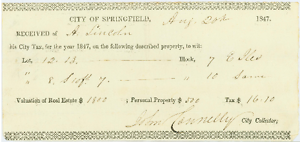 CITY OF SPRINGFIELD, Aug. 20th 1847.
RECEIVED of A. Lincoln
his City Tax, for the year 1847, on the following described property, to wit:
Lot, 12. 13. Block, 7 E Iles
" 8 7 " 10 Same
Valuation of Real Estate $ 1500 ; Personal Property $ 500 Tax $ 16.10
John Connelly City Collector;